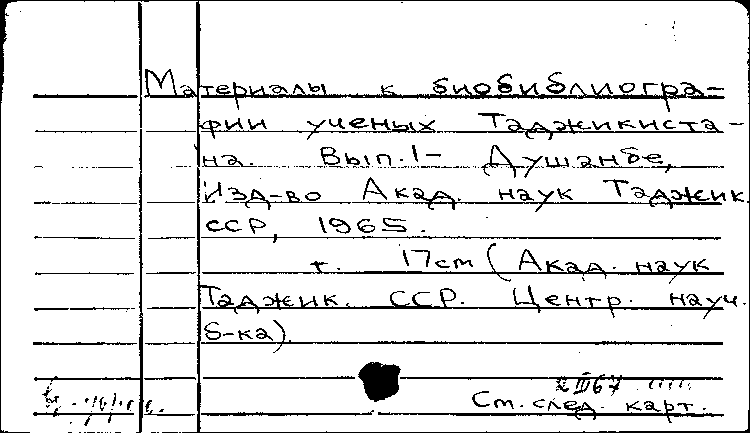 Материалы к биобиблиогра-
фии ученых Таджикиста-
на. Вып. 1- Душанбе,
Изд-во Акад. наук Таджик.
ССР, 1965.
т. 17cm (Акад. наук
Таджик. ССР. Центр. науч.
б-ка).
III 67
См. след. карт.